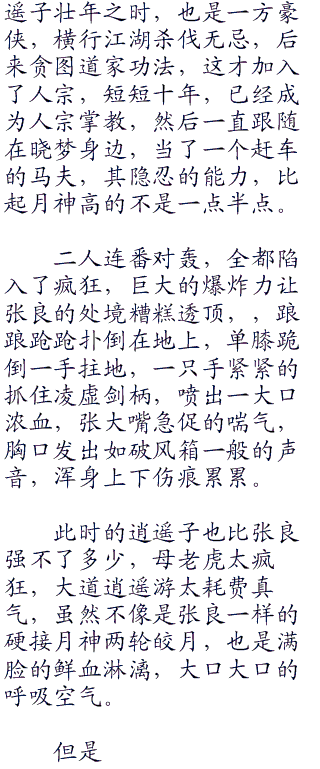 遥子壮年之时，也是一方豪
侠，横行江湖杀伐无忌，后
来贪图道家功法，这才加入
了人宗，短短十年，已经成
为人宗掌教，然后一直跟随
在晓梦身边，当了一个赶车
的马夫，其隐忍的能力，比
起月神高的不是一点半点。
二人连番对轰，全都陷
入了疯狂，巨大的爆炸力让
张良的处境糟糕透顶，，踉
踉跄跄扑倒在地上，单膝跪
倒一手拄地，一只手紧紧的
抓住凌虚剑柄，喷出一大口
浓血，张大嘴急促的喘气，
胸口发出如破风箱一般的声
音，浑身上下伤痕累累。
此时的逍遥子也比张良
强不了多少，母老虎太疯
狂，大道逍遥游太耗费真
气，虽然不像是张良一样的
硬接月神两轮皎月，也是满
脸的鲜血淋漓，大口大口的
呼吸空气。
但是